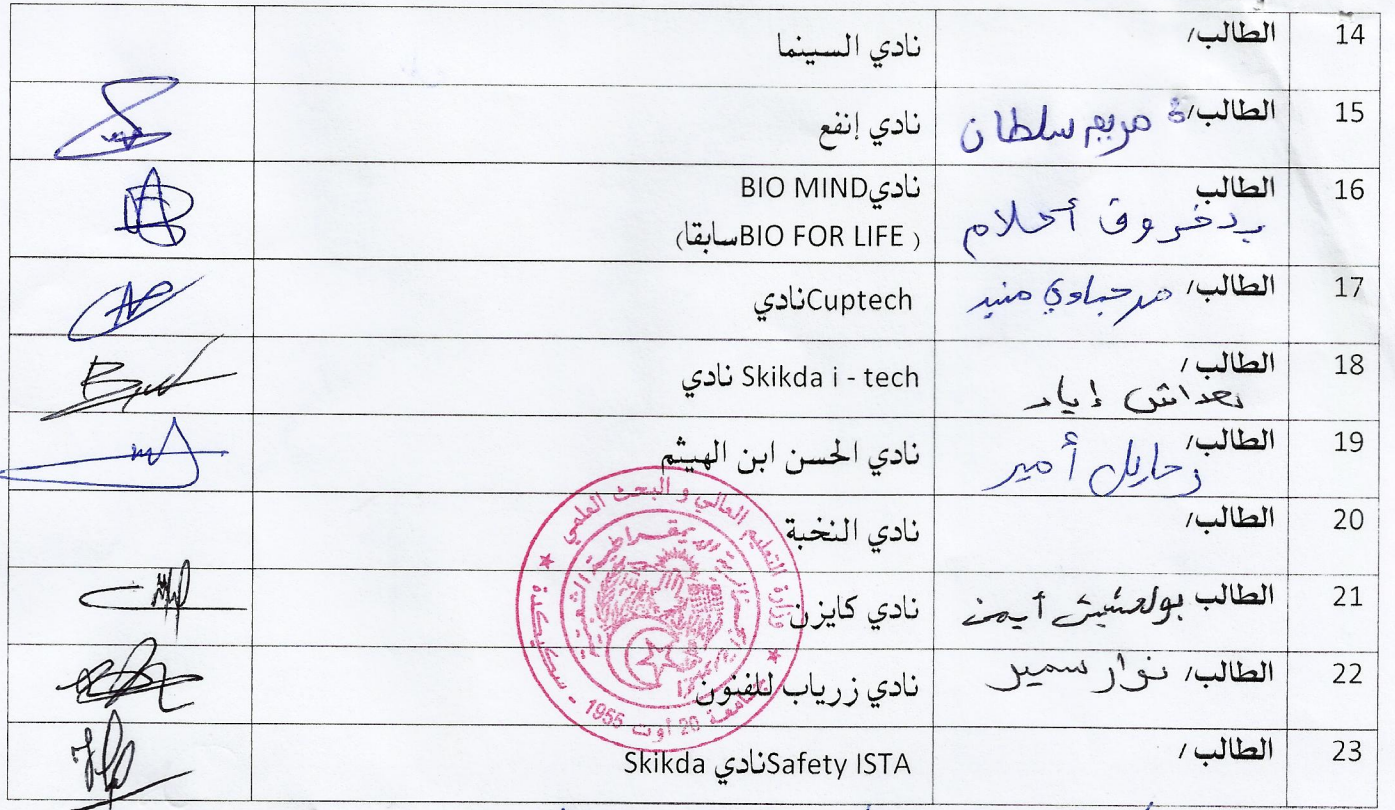 14 الطالب/ نادي السينما
15 الطالب/ة مريم سلطان نادي إنفع
16 الطالب أحلام نادي BIO MIND
( BIO FOR LIFE سابقا)
17 الطالب/ نادي Cuptech
18 الطالب/ إياد نادي Skikda i - tech
19 الطالب/ أمير نادي الحسن ابن الهيثم
20 الطالب/ نادي النخبة
21 الطالب أيمن نادي كايزن
22 الطالب/ نوار سمير نادي زرياب للفنون
23 الطالب/ نادي Safety ISTA Skikda
وزارة التعليم العالي و البحث العلمي
جامعة 20 أوت 1955 - سكيكدة